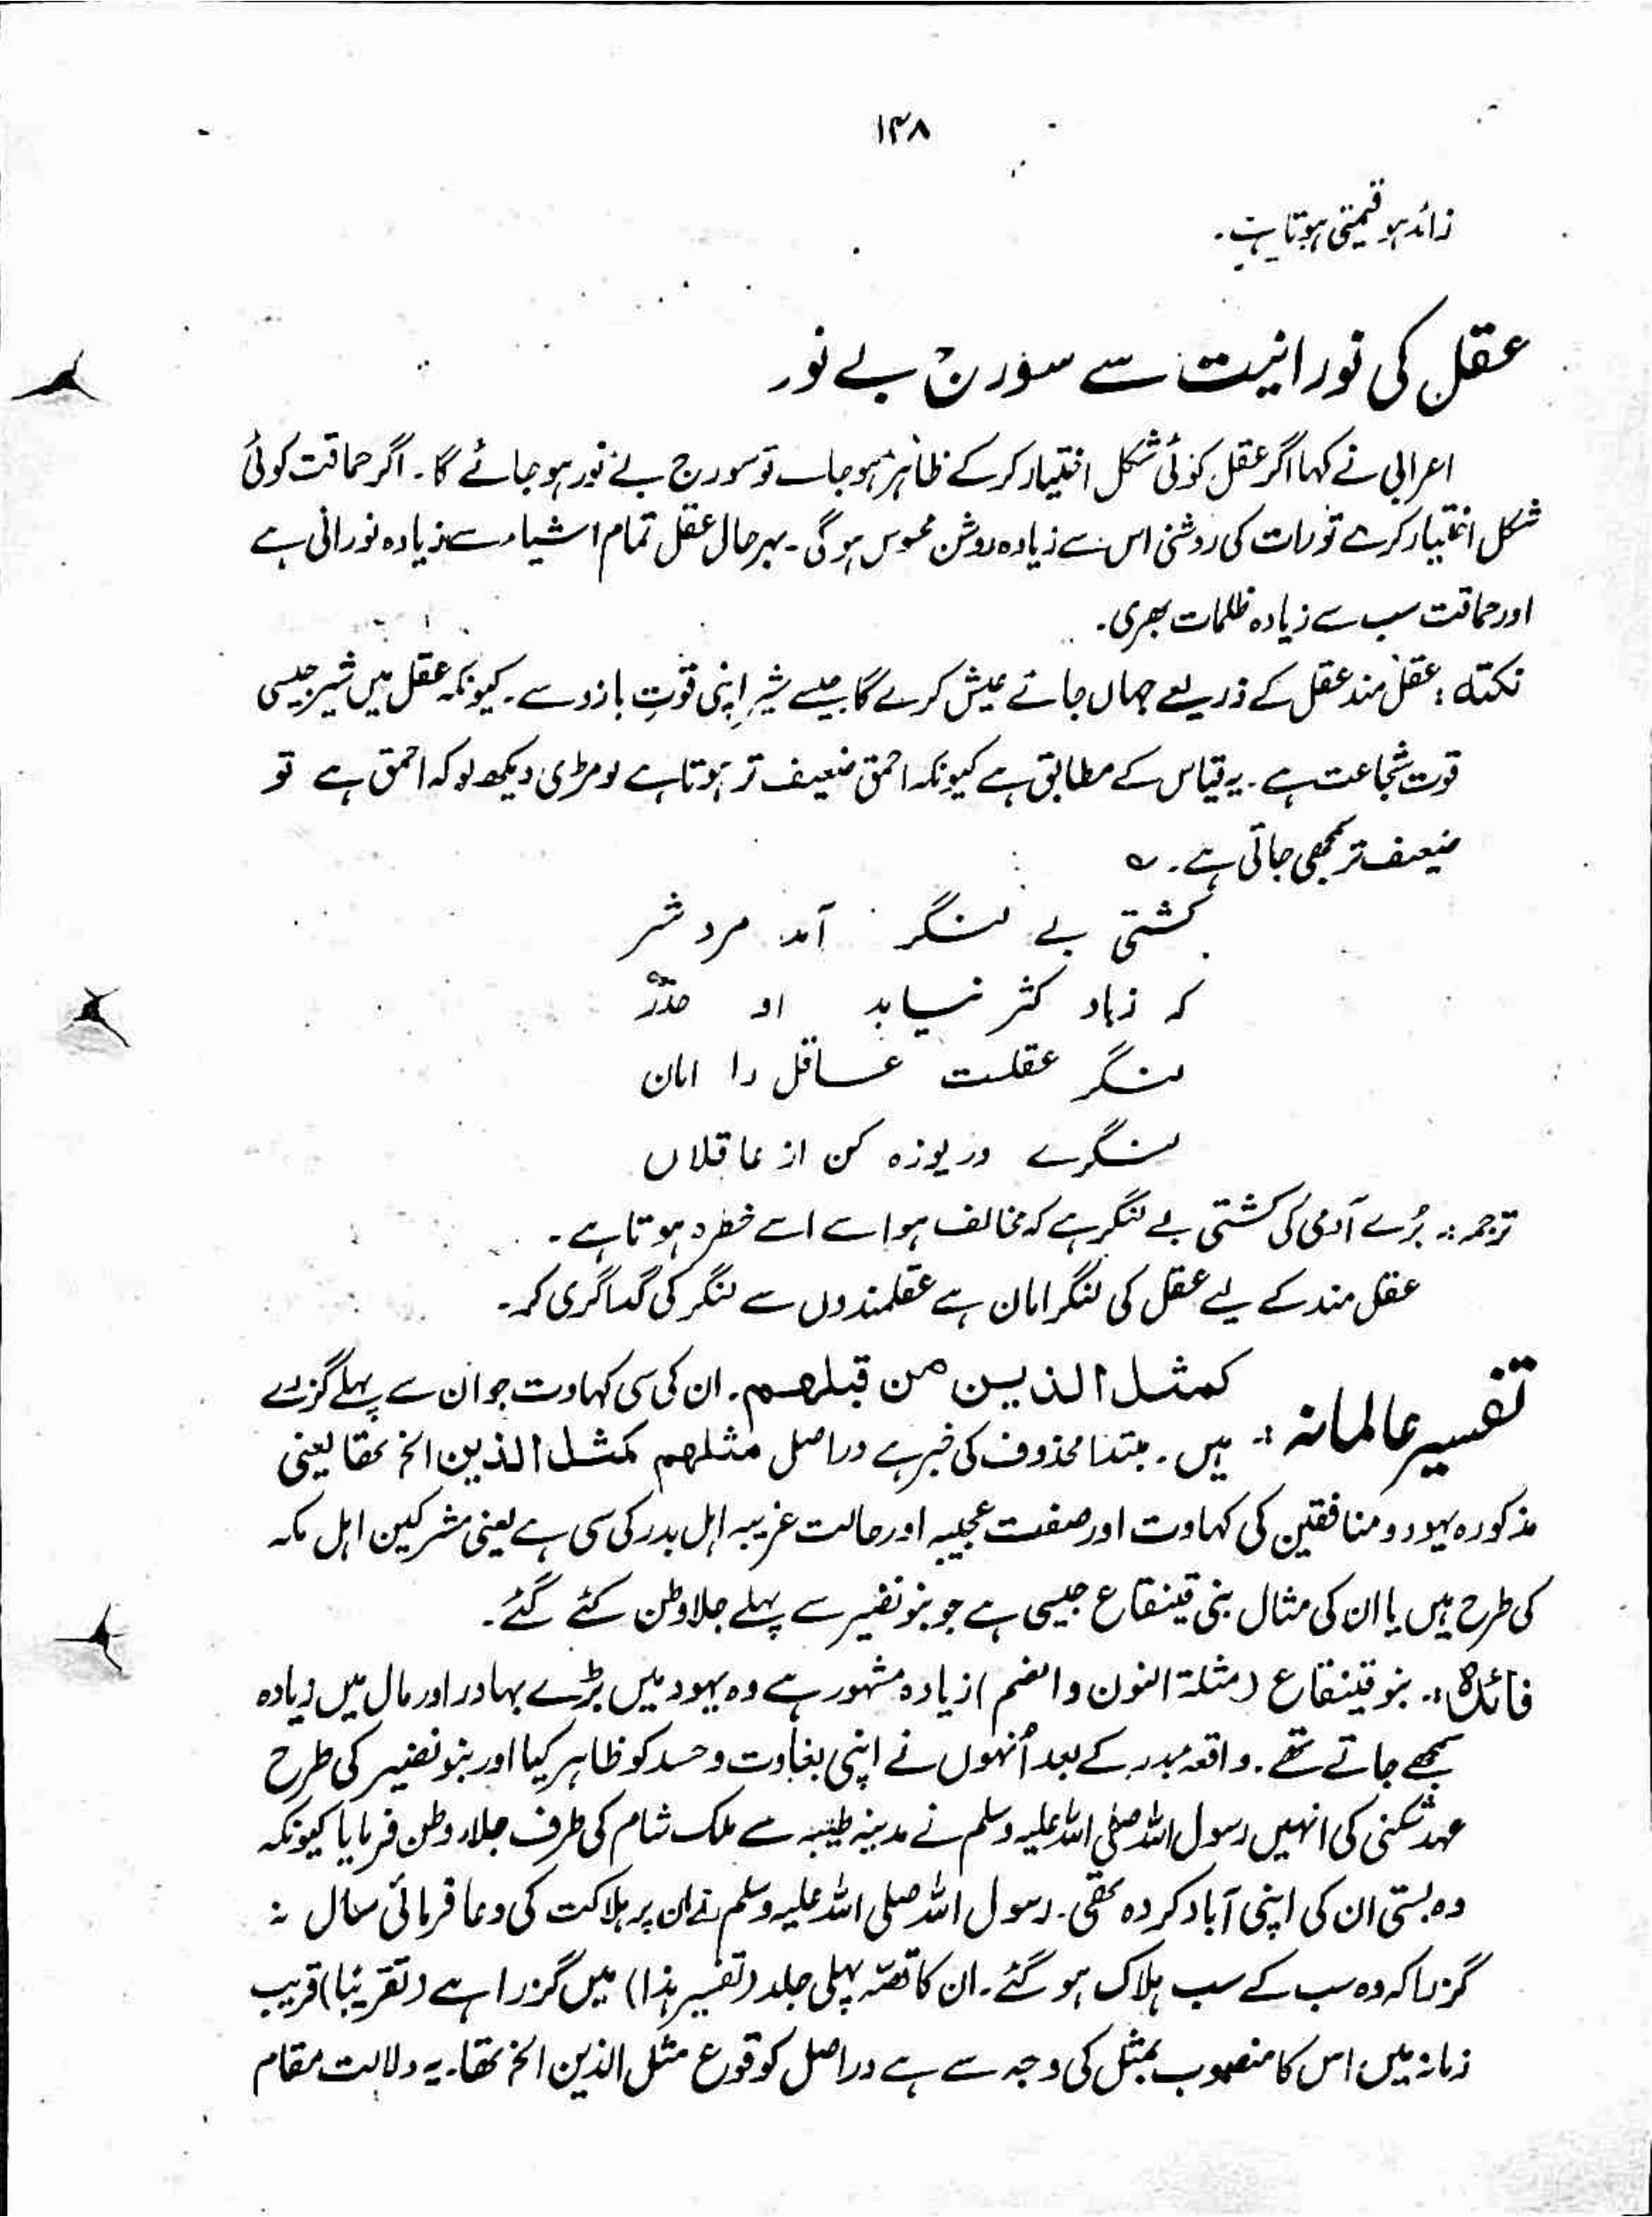 ۱۴۸
زائد ہو قیمتی ہوتا ہے۔
عقل کی نورانیت سے سورج بے نور
اعرابی نے کہا اگر عقل کوئی شکل اختیار کرکے ظاہر ہو جائے تو سورج بے نور ہو جائے گا۔ اگر حماقت کوئی
شکل اختیار کرے تو رات کی روشنی اس سے زیادہ روشن محسوس ہو گی۔ بہرحال عقل تمام اشیاء سے زیادہ نورانی ہے
اور حماقت سب سے زیادہ ظلمات بھری۔
نکتہ : عقل مند عقل کے ذریعے جہاں جائے عیش کرے گا جیسے شیر اپنی قوتِ بازو سے۔ کیونکہ عقل میں شیر جیسی
قوت شجاعت ہے۔ یہ قیاس کے مطابق ہے کیونکہ احمق ضعیف تر ہوتا ہے لومڑی دیکھ لو کہ احمق ہے تو
ضعیف تر سمجھی جاتی ہے۔ ؎
کشتی بے لنگر آمد مرد شر
کہ زباد کثر نیابد او حذر
لنگر عقلست عاقل را امان
لنگرے دریوزہ کن از عاقلاں
ترجمہ :۔ بُرے آدمی کی کشتی بے لنگر ہے کہ مخالف ہوا سے اسے خطرہ ہوتا ہے۔
عقل مند کے لیے عقل کی لنگر امان ہے عقلمندوں سے لنگر کی گداگری کر۔
تفسیر عالمانہ :۔ کمثل الذین من قبلھم۔ ان کی سی کہاوت جو ان سے پہلے گزرے
ہیں۔ مبتدا محذوف کی خبر ہے دراصل مثلھم کمثل الذین الخ تھا یعنی
مذکورہ یہود و منافقین کی کہاوت اور صفت عجیبہ اور حالت غریبہ اہل بدر کی سی ہے یعنی مشرکین اہل مکہ
کی طرح ہیں یا ان کی مثال بنی قینقاع جیسی ہے جو بنو نضیر سے پہلے جلاوطن کئے گئے۔
فائدہ :۔ بنو قینقاع (مثلۃ النون والضم) زیادہ مشہور ہے وہ یہود میں بڑے بہادر اور مال میں زیادہ
سمجھے جاتے تھے۔ واقعہ بدر کے بعد اُنہوں نے اپنی بغاوت و حسد کو ظاہر کیا اور بنو نضیر کی طرح
عہد شکنی کی انہیں رسول اللہ صلی اللہ علیہ وسلم نے مدینہ طیبہ سے ملک شام کی طرف جلاوطن فرمایا کیونکہ
وہ بستی ان کی اپنی آباد کردہ تھی۔ رسول اللہ صلی اللہ علیہ وسلم نے ان پر ہلاکت کی دعا فرمائی سال نہ
گزرا کہ وہ سب کے سب ہلاک ہو گئے۔ ان کا قصہ پہلی جلد (تفسیر ہذا) میں گزرا ہے (تقریبًا) قریب
زمانہ میں اس کا منصوب بمثل کی وجہ سے ہے دراصل کوقوع مثل الذین الخ تھا۔ یہ دلالت مقام